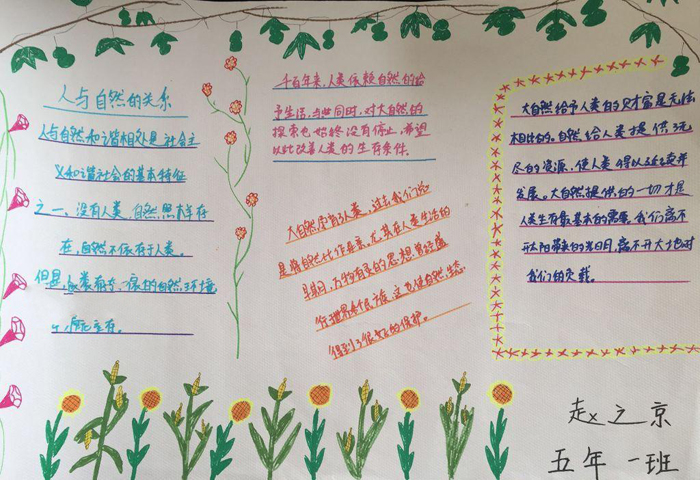 人与自然的关系
人与自然和谐相处是社会主
义和谐社会的基本特征
之一、没有人类,自然照样存
在,自然不依存于人类。
但是,人类有
的自然环境
中,
千百年来,人类依赖自然的给
予生活,与此同时,对大自然的
探索也始终没有停止,希望
以此改善人类的生存条件.
大自然厚育了人类,过去我们总
是将自然比作母亲,尤其在人类生活的
早期,万物有灵的思想曾经盛
行世界
民族,这也使自然生态
得到了很好的保护。
大自然给予人类的财富是无法
相比的。自然给人类提供了无
尽的资源,使人类得以延续并
发展。大自然提供的一切才是
人类生存最基本的需要。我们离不
开太阳带来的光明,离不开大地对
我们的负载。
赵之京
五年一班